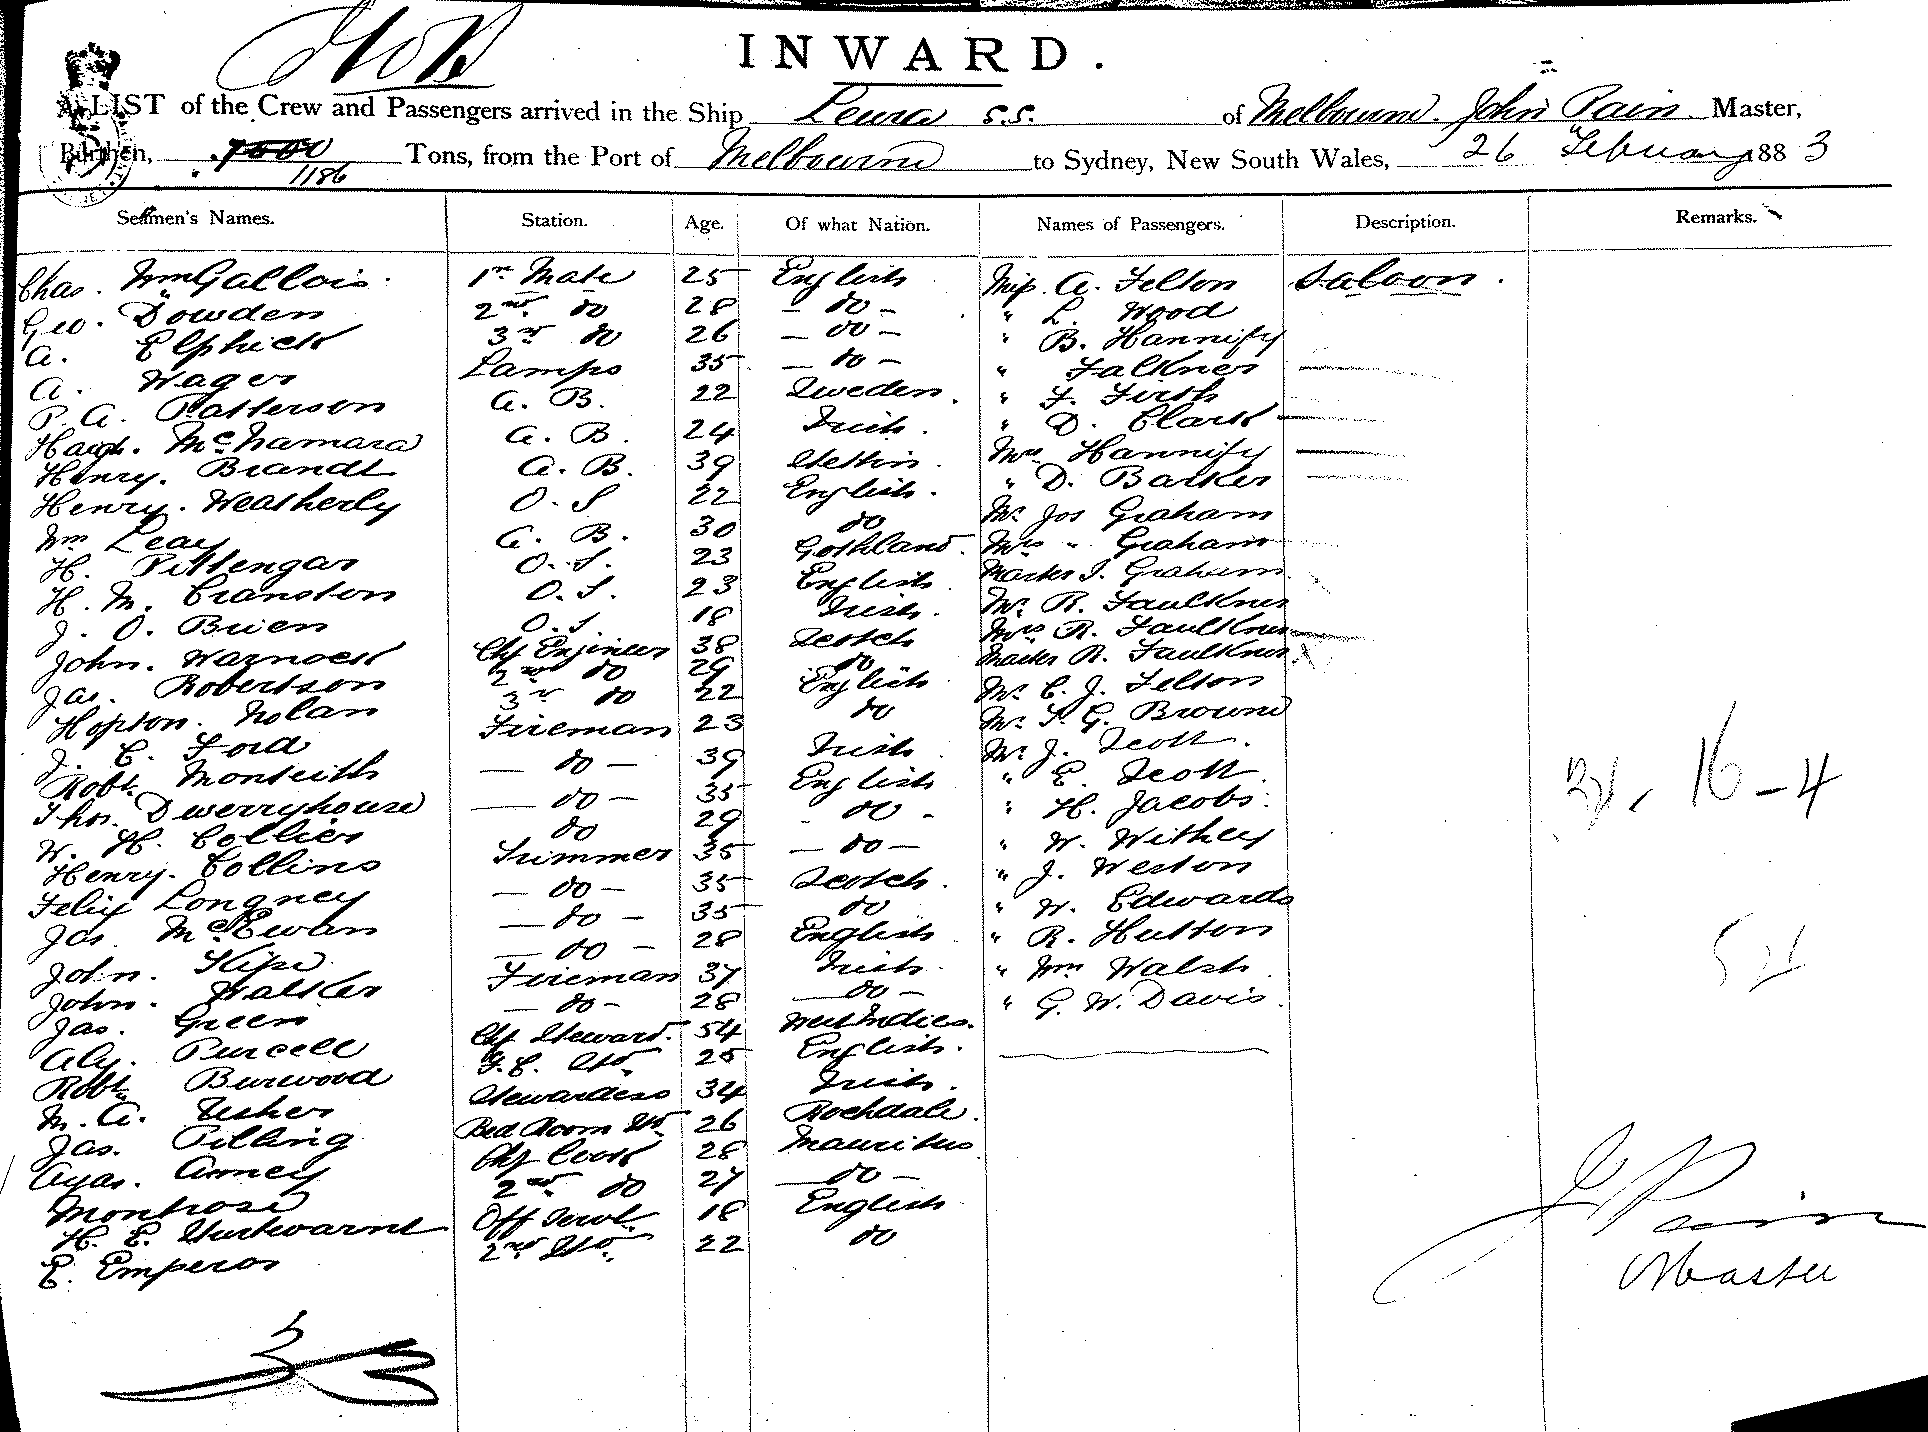 INWARD.
A LIST of the Crew and Passengers arrived in the Ship Leura s.s. of Melbourne John Pain Master,
Burthen, 1186 Tons, from the Port of Melbourne to Sydney, New South Wales, 26 February 1883
Seamen's Names. Station. Age. Of what Nation. Names of Passengers. Description. Remarks.
Chas. Wm Gallois 1st Mate 25 English Miss A. Felton Saloon.
Geo. Dowden 2nd do 28 - do - " L. Wood
A. Elphick 3rd do 26 - do - " B. Hannify
A. Wager Lamps 35 - do - " Falkner
P. A. Patterson A. B. 22 Sweden. " F. Firth
Hugh. McNamara A. B. 24 Irish. " D. Clark
Henry. Brandt A. B. 39 Stettin. Mrs Hannify
Henry. Weatherly O. S 22 English. " D. Barker
Wm Leay A. B. 30 do Mr Jos Graham
H. Pittengar O. S. 23 Gothland. Mrs " Graham
H. M. Cranston O. S. 23 English Master J. Graham
J. O. Brien O. S 18 Irish. Mr R. Faulkner
John. Warnock Chf Engineer 38 Scotch Mrs R. Faulkner
Jas. Robertson 2nd do 29 do Master R. Faulkner
Hopton. Nolan 3rd do 22 English Mr C. J. Felton
J. C. Ford Fireman 23 do Mr T. G. Browne
Robt. Monteith - do - 39 Irish Mr J. Scott.
Thos. Dwerryhouse - do - 35 English " E. Scott.
W. H. Collier do 29 - do - " H. Jacobs.
Henry. Collins Trimmer 35 - do - " W. Withey
Felix Longney - do - 35 Scotch. " J. Weston
Jas. McEwan - do - 35 do " W. Edwards
John. Kipe - do - 28 English " R. Hutton
John. Walker Fireman 37 Irish. " Wm Walsh
Jas. Green - do - 28 - do - " G. W. Davis.
Aly. Purcell Chf Steward. 54 West Indies.
Robt Burwood F. C. Std. 25 English.
M. A. Usher Stewardess 34 Irish.
Jas. Pilling Bed Room Std 26 Rochdale.
Ayas. Amey Chf Cook 28 Mauritius
Montrose 2nd do 27 - do -
H. E. Off Servt. 18 English
E. Emperor 2nd Std. 22 do
16 - 4
52
J Pain
Master